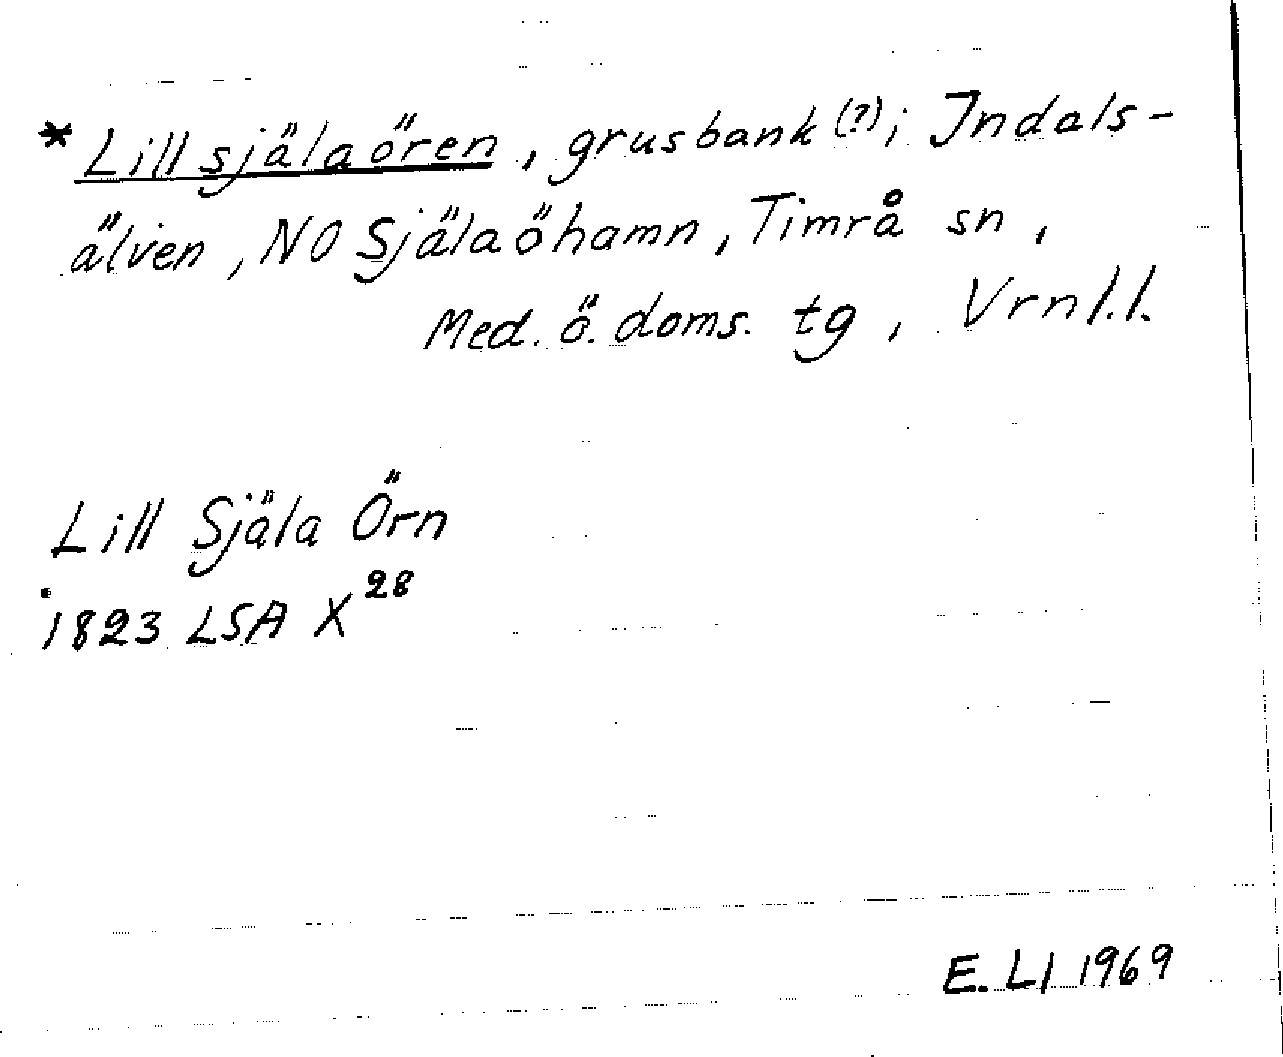 * Lillsjälaören, grusbank (?) i Indals-
älven, NO Själaöhamn, Timrå sn,
Med. ö. doms. tg, Vrnl.l.
Lill Själa Örn
1823 LSA X 28
E. Ll 1969